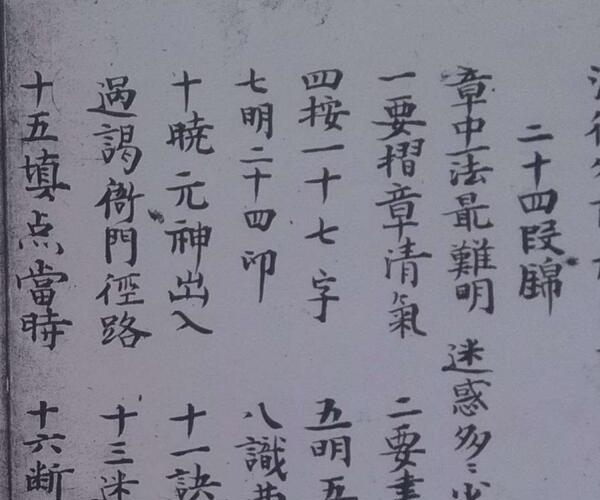 二十四段錦
章中一法最難明 迷惑多〻
一要摺章清氣 二要
四按一十七字 五明五
七明二十四印 八識
十曉元神出入 十一訣
過謁衙門徑路 十三迷
十五填点當時 十六断